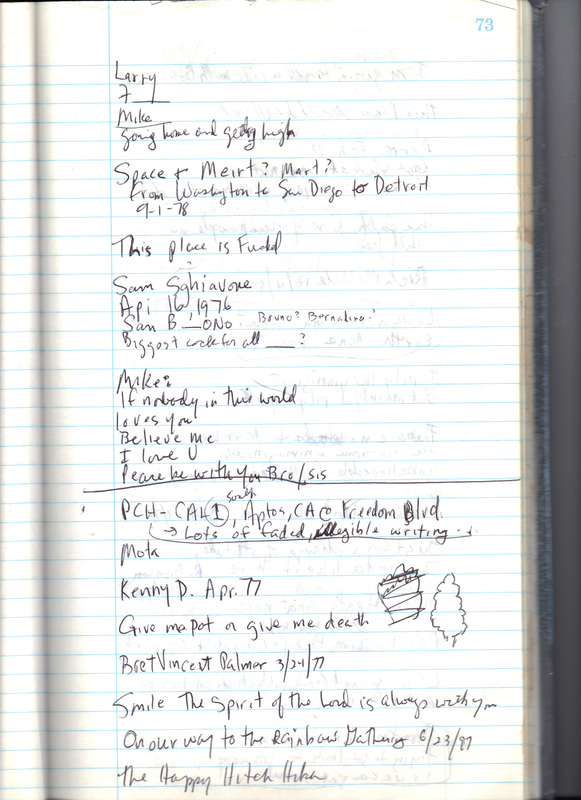 73
Larry
7___
Mike
going home and getting high
Space + Meirt? Mart?
From Washington to San Diego to Detroit
9-1-78
This place is Fucked
Sam Sghiavone
Apr 16, 1976
San B__ONO Bruno? Bernadino?
Biggest cock for all ___?
Mike:
If nobody in this world
loves you
Believe me
I love U
Peace be with you Bro/sis
south
PCH - CAH 1, Aptos, CA @ Freedom Blvd.
→ Lots of faded, illegible writing
Mota
Kenny D. Apr. 77
Give me pot or give me death
Bret Vincent Palmar 3/21/77
Smile The Spirit of the Lord is always with you
On our way to the Rainbow Gathering 6/23/87
The Happy Hitch Hiker